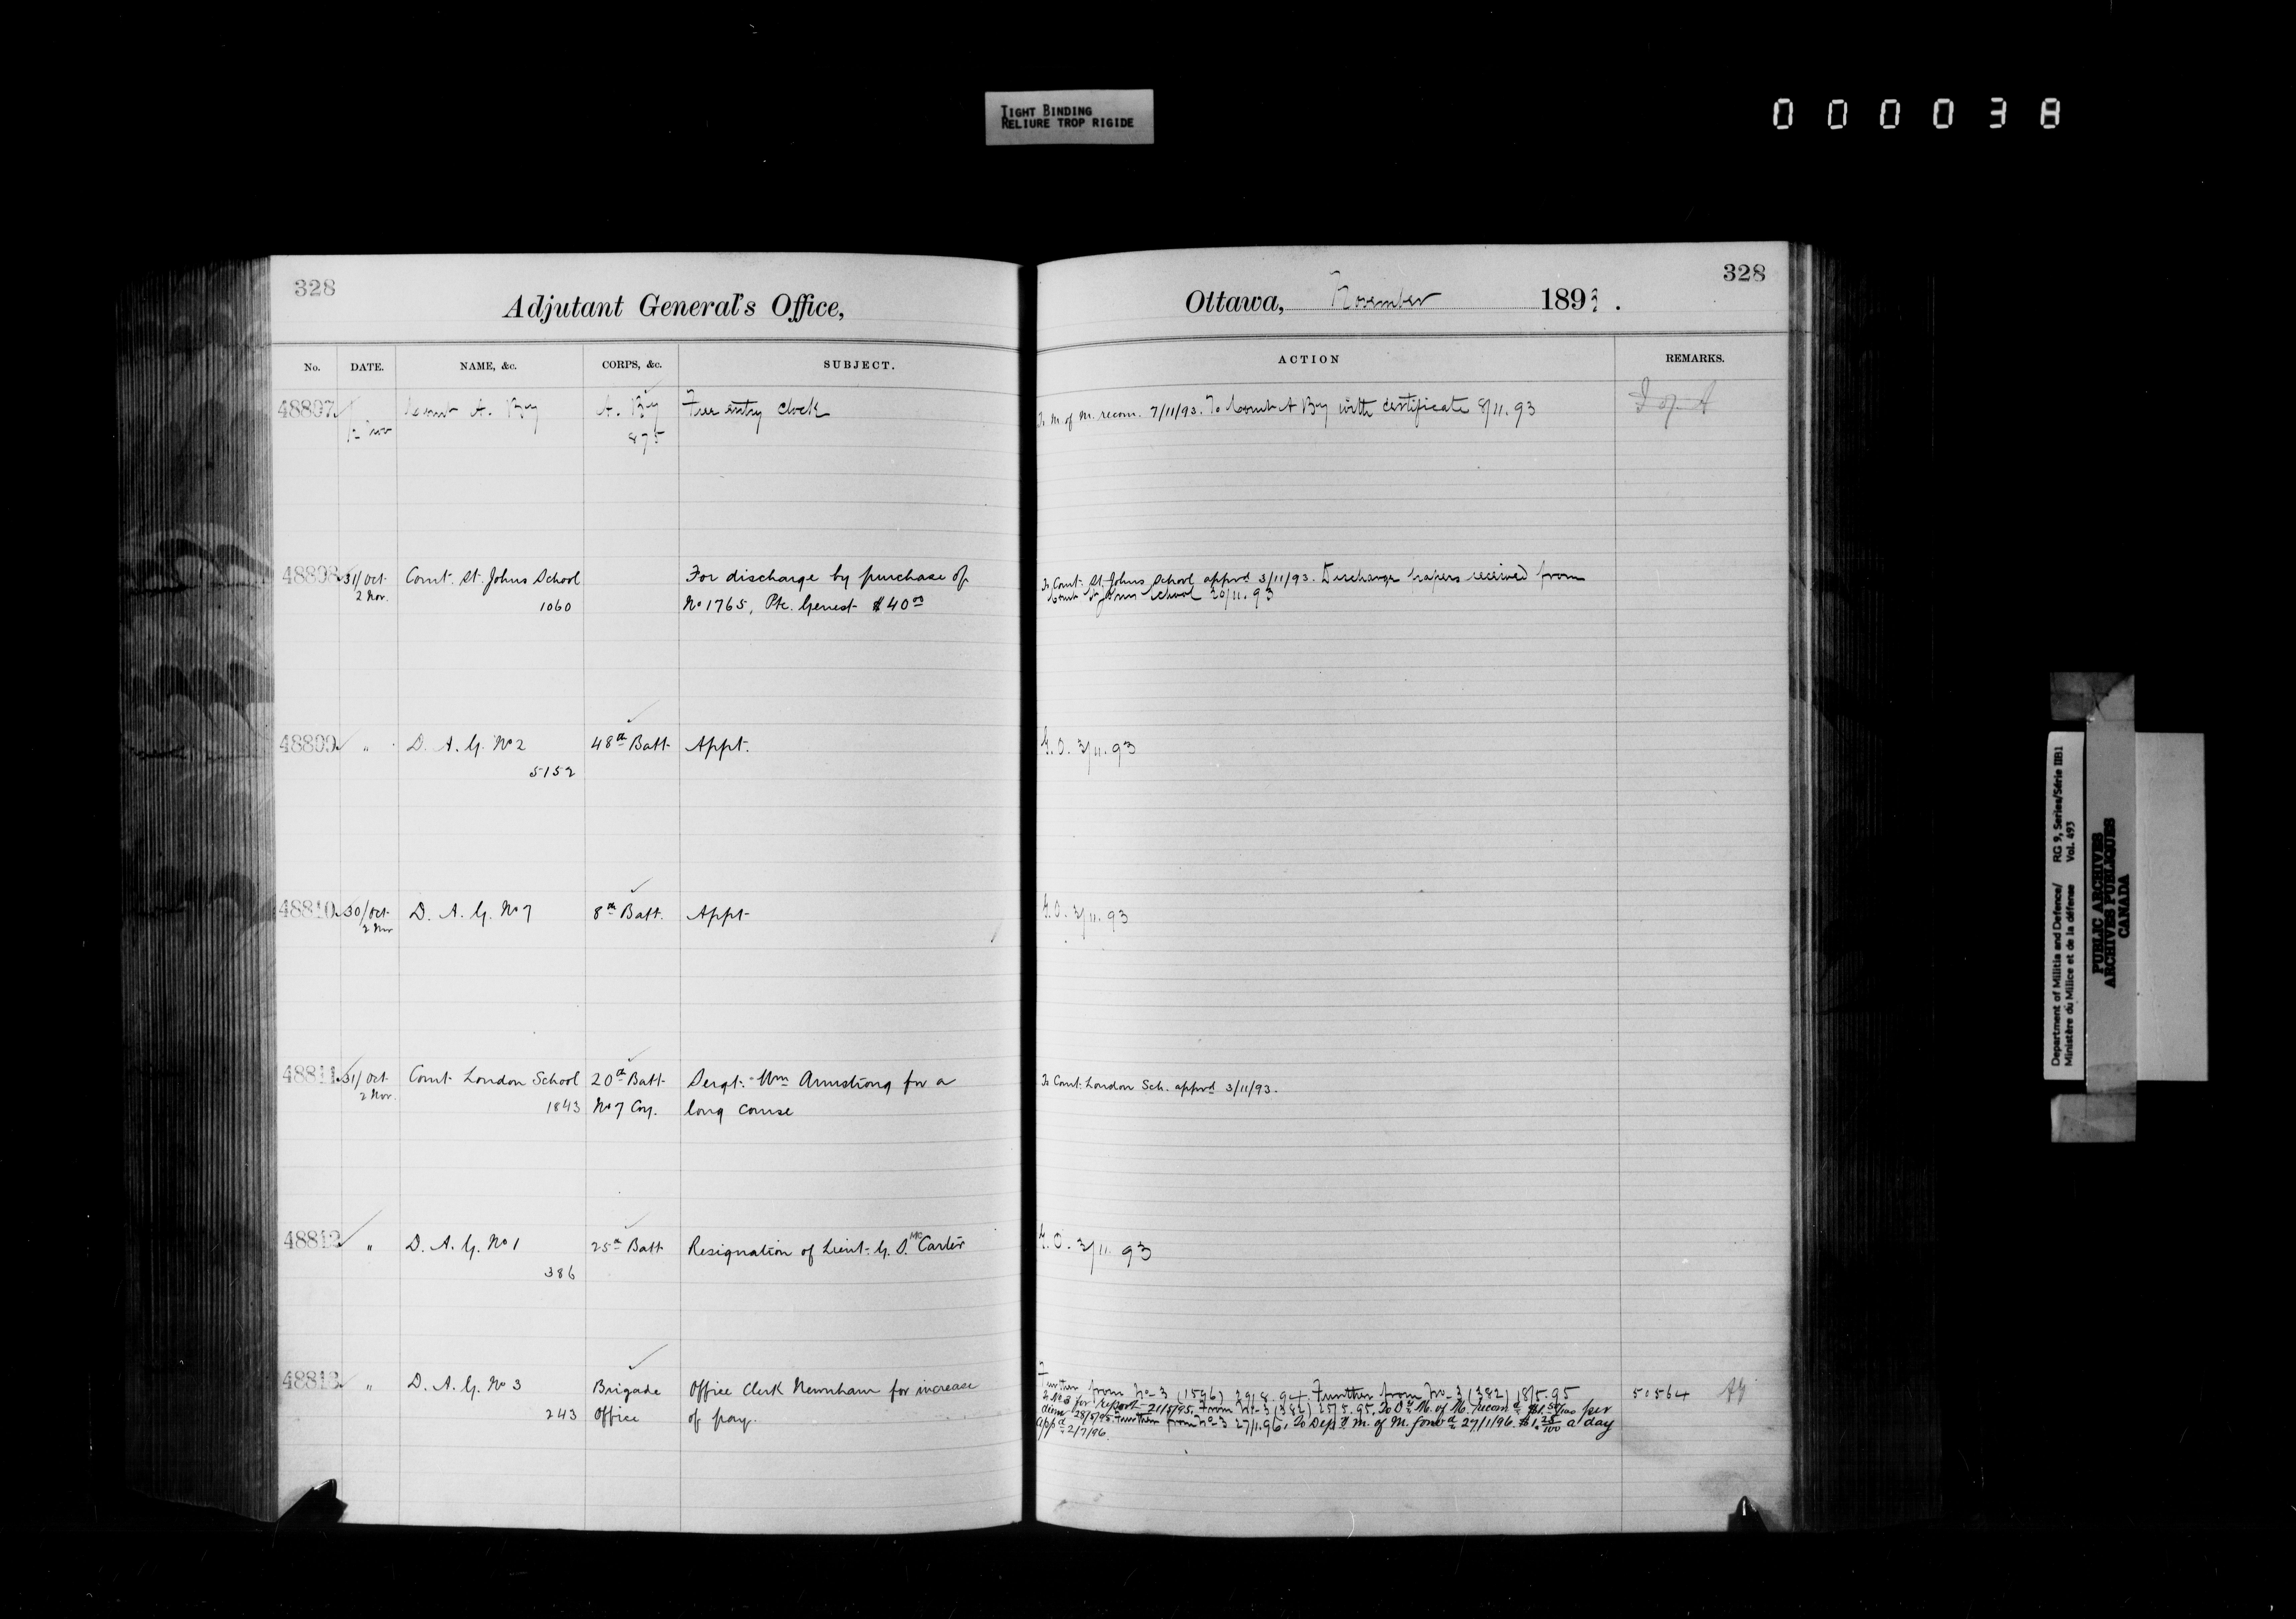 TIGHT BINDING
RELIURE TROP RIGIDE
000038
328
Adjutant General's Office,
No. DATE. NAME, &c. CORPS, &c. SUBJECT.
48807 Comt A. By A. By Free entry clock
2 Nov 875
48808 31/Oct Comt. St. Johns School For discharge by purchase of
2 Nov. 1060 No 1765, Pte. Genest $40 00
48809 " D. A. G. No 2 48th Batt. Appt.
5152
48810 30/Oct D. A. G. No 7 8th Batt. Appt
2 Nov
48811 31/Oct Comt London School 20th Batt Sergt. Wm Armstrong for a
2 Nov. 1843 No 7 Coy. long course
48812 " D. A. G. No 1 25th Batt Resignation of Lieut. G. D. McCarter
386
48813 " D. A. G. No 3 Brigade Office Clerk Newnham for increase
243 Office of pay.
328
Ottawa, November 1893.
ACTION REMARKS.
To M. of M. recom. 7/11/93. To Comt A By with certificate 8/11.93
To Comt. St. Johns School apprvd 3/11/93. Discharge papers received from
Comt St Johns School 20/11.93
G.O. 3/11.93
G.O. 3/11.93
To Comt. London Sch. apprvd 3/11/93.
G.O. 3/11.93
Further from No 3 (1596) 29/8.94. Further from No 3 (382) 18/5.95 50564
To No 3 for report 21/5/95. From No 3 (382) 25/5.95. To D M. of M. recomd $1.50/100 per
diem 28/5/95. Further from No 3 27/1.96. To Dep M. of M. forwd 27/1/96. $1.25/100 a day
appd 2/7/96.
Department of Militia and Defence/ RG 9, Series/Série IIB1
Ministère du Milice et de la défense Vol. 493
PUBLIC ARCHIVES
ARCHIVES PUBLIQUES
CANADA